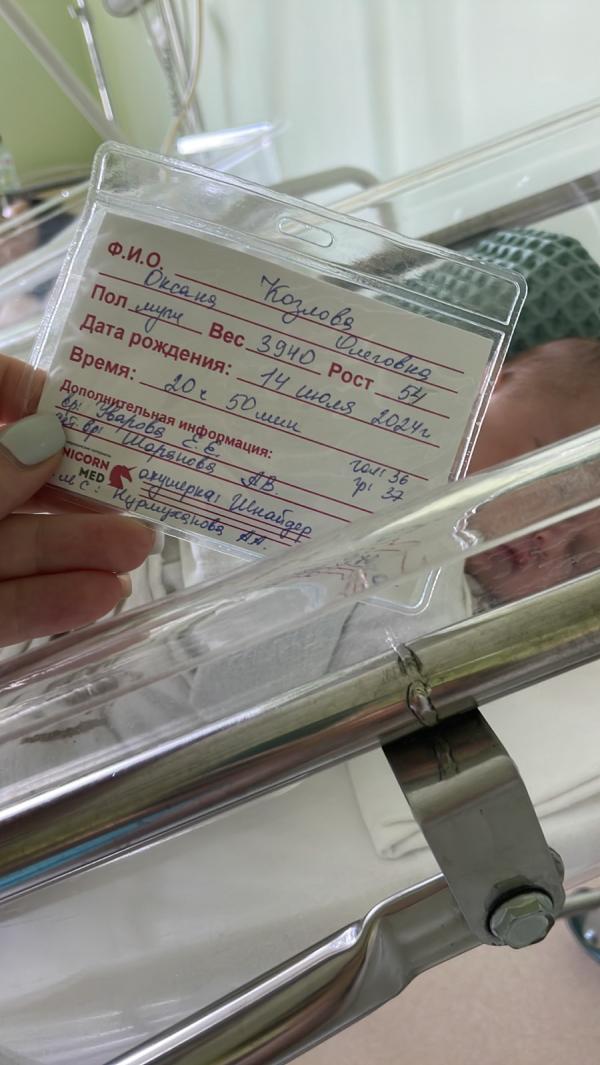 Ф.И.О. Козлова
Оксана Олеговна
Пол муж Вес 3940 Рост 54
Дата рождения: 14 июля 2024г
Время: 20ч 50 мин
Дополнительная информация:
вр: Уварова Е.Е. гол: 36
вр: Шарянова А.В. гр: 37
UNICORN
MED
акушерка: Шнайдер
м/с: Нурмуханова А.А.